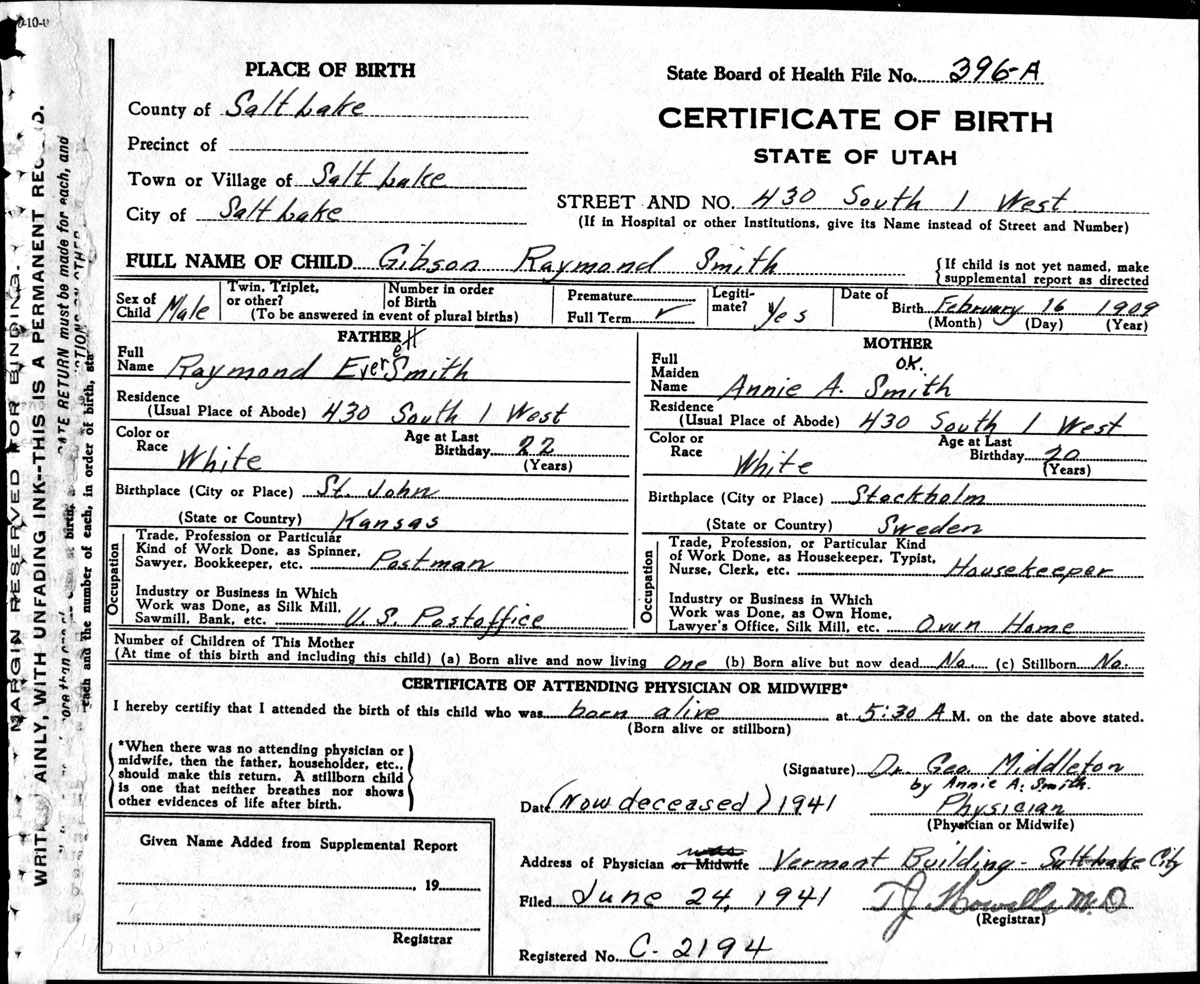 0-10-0
MARGIN RESERVED FOR BINDING.
AINLY, WITH UNFADING INK--THIS IS A PERMANENT
RATE RETURN must be made for each, and
each and the number of each, in order of birth, sta
PLACE OF BIRTH
County of Salt Lake
Precinct of
Town or Village of Salt Lake
City of Salt Lake
State Board of Health File No. 396-A
CERTIFICATE OF BIRTH
STATE OF UTAH
STREET AND NO. 430 South 1 West
(If in Hospital or other Institutions, give its Name instead of Street and Number)
FULL NAME OF CHILD Gibson Raymond Smith
{If child is not yet named, make
supplemental report as directed
Sex of
Child Male
Twin, Triplet,
or other?
Number in order
of Birth
(To be answered in event of plural births)
Premature
Full Term ✓
Legiti-
mate? Yes
Date of
Birth February 16 1909
(Month) (Day) (Year)
FATHER
Full
Name Raymond Everett Smith
Residence
(Usual Place of Abode) 430 South 1 West
Color or
Race White
Age at Last
Birthday 22
(Years)
Birthplace (City or Place) St. John
(State or Country) Kansas
Occupation
Trade, Profession or Particular
Kind of Work Done, as Spinner,
Sawyer, Bookkeeper, etc. Postman
Industry or Business in Which
Work was Done, as Silk Mill,
Sawmill, Bank, etc. U.S. Postoffice
MOTHER
OK.
Full
Maiden
Name Annie A. Smith
Residence
(Usual Place of Abode) 430 South 1 West
Color or
Race White
Age at Last
Birthday 20
(Years)
Birthplace (City or Place) Stockholm
(State or Country) Sweden
Occupation
Trade, Profession, or Particular Kind
of Work Done, as Housekeeper, Typist,
Nurse, Clerk, etc. Housekeeper
Industry or Business in Which
Work was Done, as Own Home,
Lawyer's Office, Silk Mill, etc. Own Home
Number of Children of This Mother
(At time of this birth and including this child) (a) Born alive and now living One (b) Born alive but now dead No. (c) Stillborn No.
CERTIFICATE OF ATTENDING PHYSICIAN OR MIDWIFE*
I hereby certifiy that I attended the birth of this child who was born alive at 5:30 A M. on the date above stated.
(Born alive or stillborn)
*When there was no attending physician or
midwife, then the father, householder, etc.,
should make this return. A stillborn child
is one that neither breathes nor shows
other evidences of life after birth.
(Signature) Dr. Geo. Middleton
by Annie A. Smith.
Date (Now deceased) 1941
Physician
(Physician or Midwife)
Given Name Added from Supplemental Report
, 19
Registrar
was
Address of Physician or Midwife Vermont Building - Salt Lake City
Filed June 24, 1941
(Registrar)
Registered No. C-2194